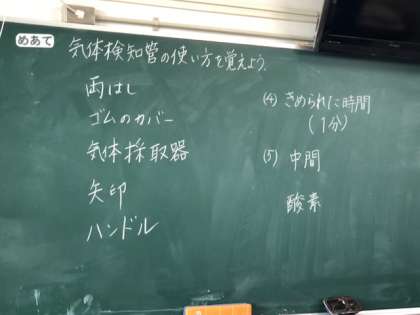 めあて 気体検知管の使い方を覚えよう。
両はし
ゴムのカバー
気体採取器
矢印
ハンドル
(4) きめられた時間
(1分)
(5) 中間
酸素